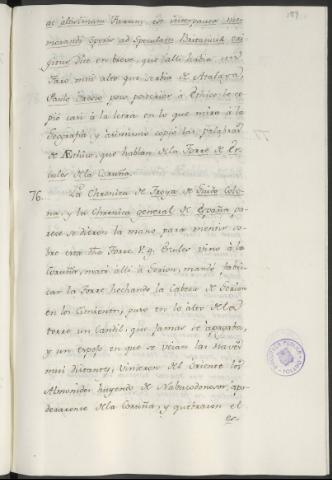 189
ac altissimam Farum, et inter pauca me-
morandi operis ad Speculam Britaniæ eri-
gitur. Dice en breve, que alli habia un
Faro mui alto que servia de Atalaya.
Paulo Orosio poco posterior à Ethico, le co-
piò casi à la letra en lo que mira à la
Geografia, y asimismo copiò las palabras
de Æthico, que hablan de la Torre de Er-
cules de la Coruña.
76. La Chronica de Troya de Guido Colo-
na, y la Chronica general de España pa-
rece se dieron la mano para mentir so-
bre esta Torre. Que Ercules vino à la
Coruña, matò alli à Gerion, mandò fabri-
car la Torre hechando la Cabeza de Gerion
en los Cimientos, puso en lo alto de la
torre un Candil, que jamas se apagaba,
y un espejo en que se veian las Naves
mui distantes; Vinieron del Oriente los
Almonides huyendo de Nabucodonosor, apo-
deraronse de la Coruña, y quebraron el
es-